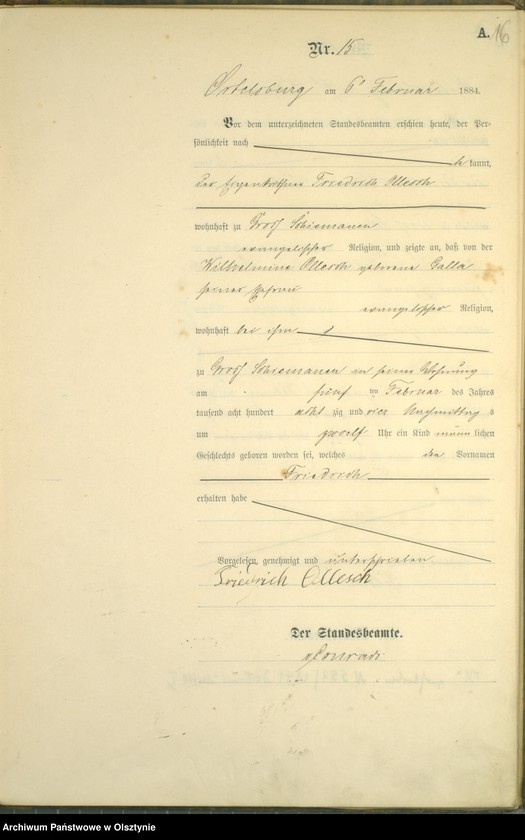 A. 16
Nr. 15
Ortelsburg am 6' Februar 1884.
Vor dem unterzeichneten Standesbeamten erschien heute, der Per-
sönlichkeit nach kannt,
der Eigenkäthner Friedrich Ollesch
wohnhaft zu Groß Schiemanen
evangelischer Religion, und zeigte an, daß von der
Wilhelmine Ollesch geborene Galla
seiner Ehefrau
evangelischer Religion,
wohnhaft bei ihm
zu Groß Schiemanen in seiner Wohnung
am fünf ten Februar des Jahres
tausend acht hundert acht zig und vier Nachmittag s
um zwoelf Uhr ein Kind männ lichen
Geschlechts geboren worden sei, welches den Vornamen
Friedrich
erhalten habe
Vorgelesen, genehmigt und unterschrieben
Friedrich Ollesch
Der Standesbeamte.
Conradi
Archiwum Państwowe w Olsztynie